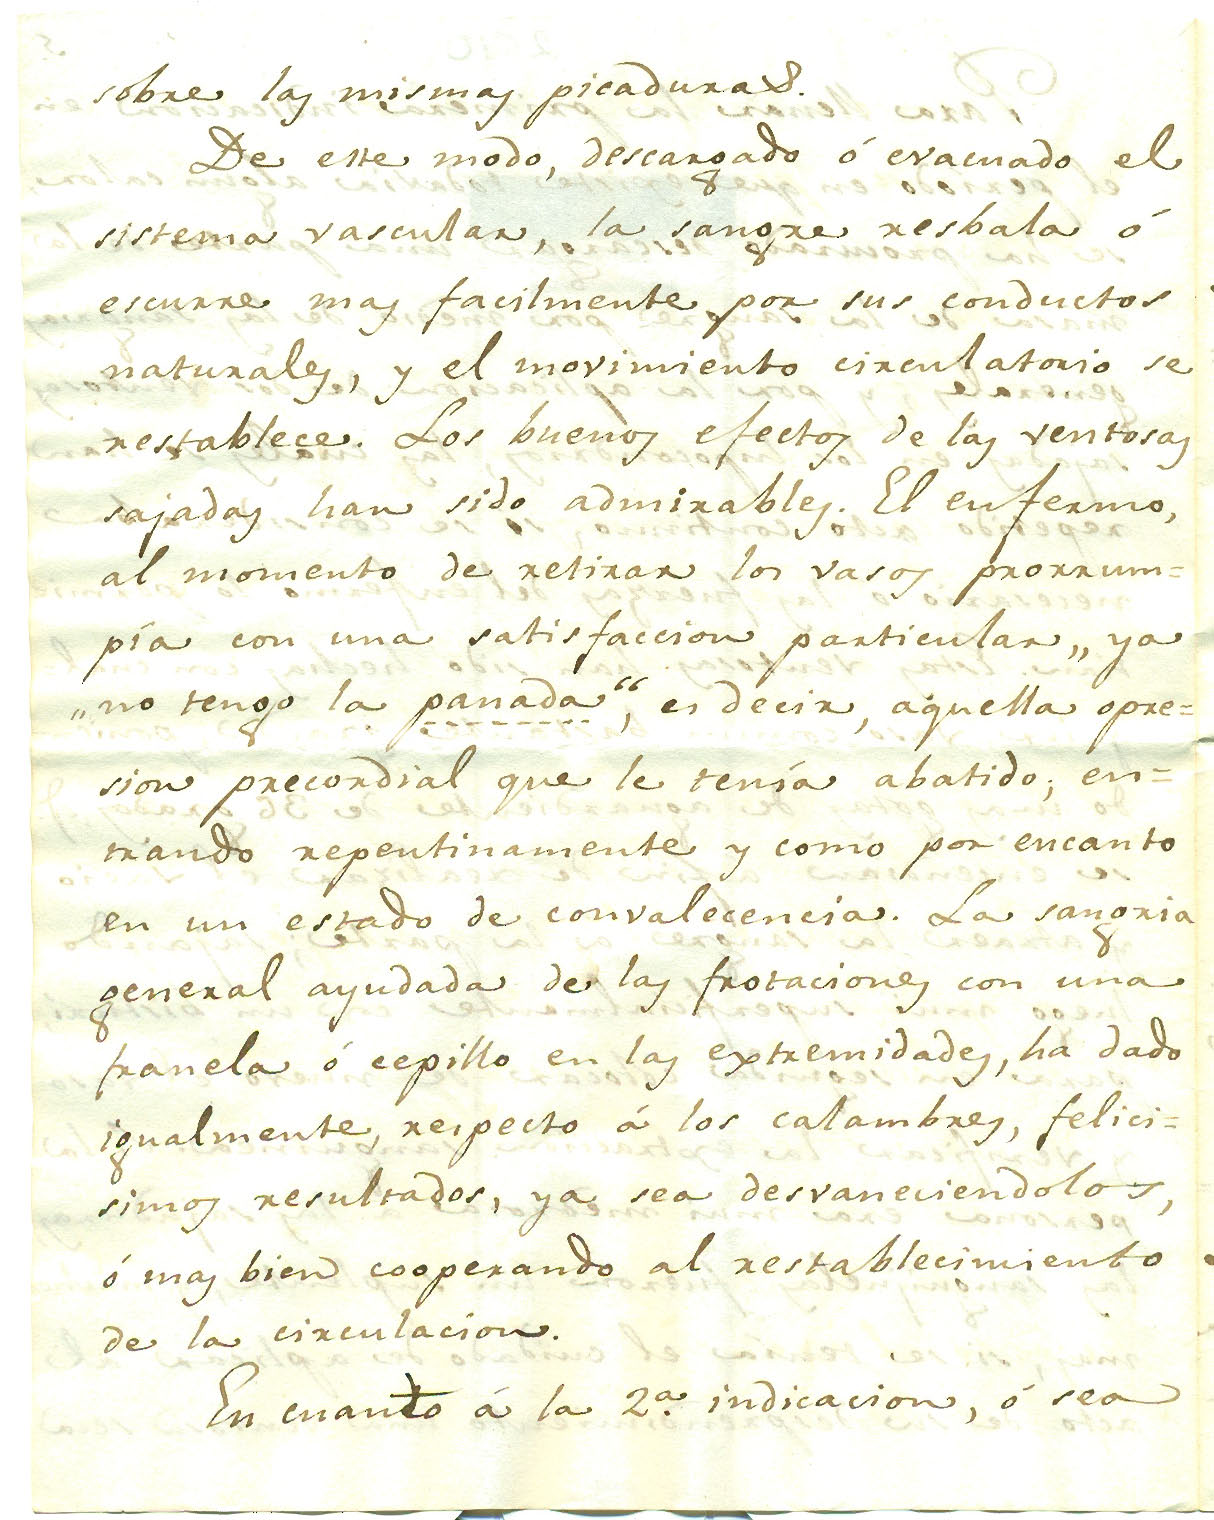 sobre las mismas picaduras.
De este modo, descargado ó evacuado el
sistema vascular, la sangre resbala ó
escurre mas facilmente por sus conductos
naturales, y el movimiento circulatorio se
restablece. Los buenos efectos de las ventosas
sajadas han sido admirables. El enfermo,
al momento de retirar los vasos prorrum=
pía con una satisfaccion particular „ ya
„ no tengo la panada“, es decir, aquella opre=
sion precordial que le tenía abatido; en=
trando repentinamente y como por encanto
en un estado de convalecencia. La sangria
general ayudada de las frotaciones con una
franela ó cepillo en las extremidades, ha dado
igualmente, respecto á los calambres, felici=
simos resultados, ya sea desvaneciendolos,
ó mas bien cooperando al restablecimiento
de la circulacion.
En cuanto á la 2ª. indicacion, ó sea